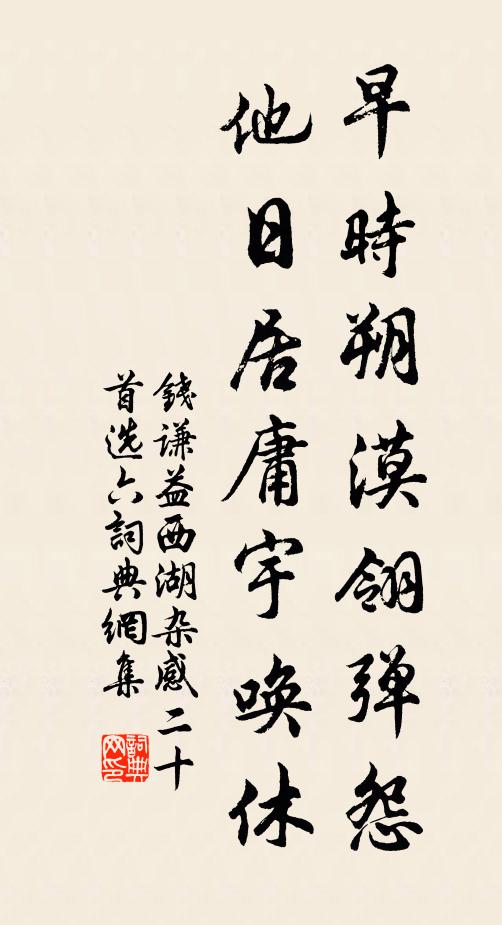 早時朔漠翎弹怨
他日居庸宇唤休
錢谦益西湖杂感二十
首选六詞典網集
詞典網印